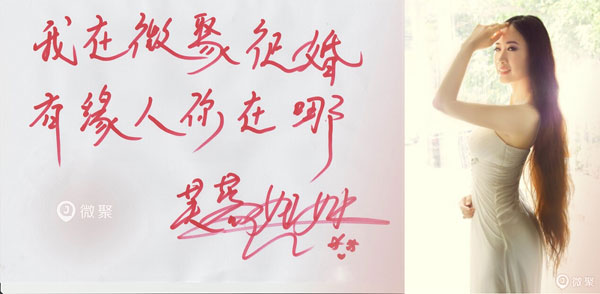 我在微聚征婚
有緣人你在哪
芙蓉姐姐
微聚
微聚